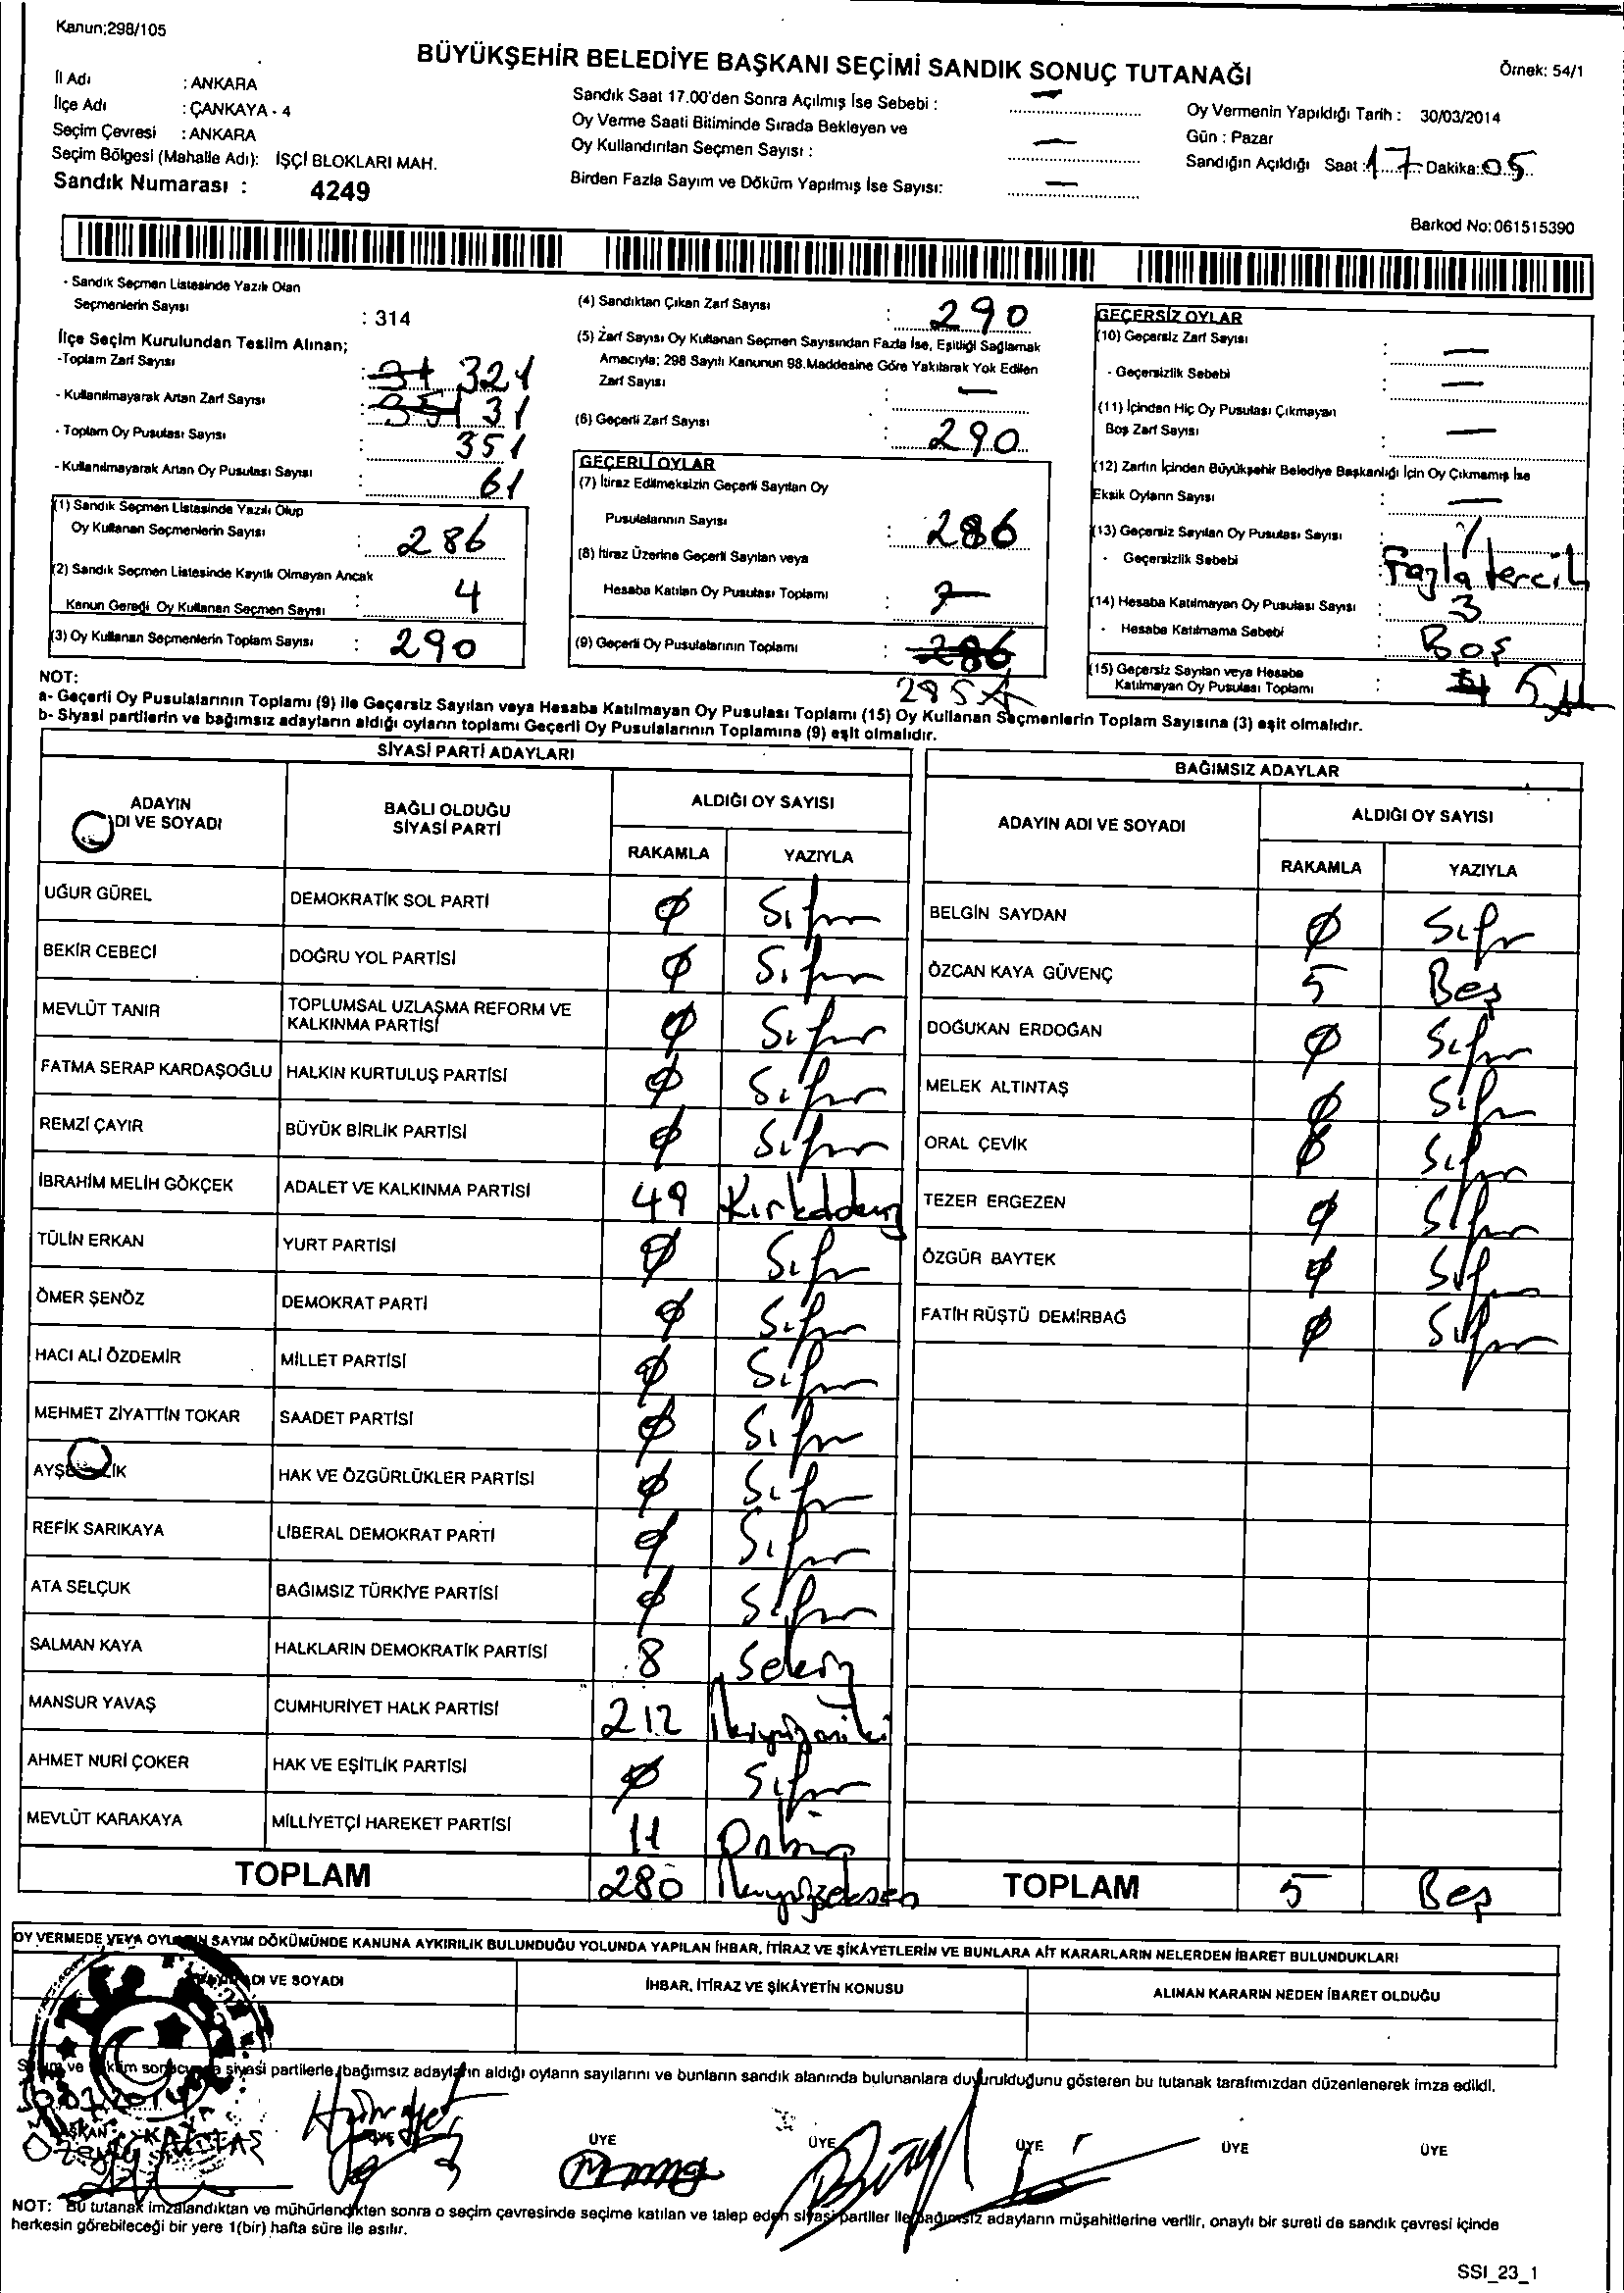 Kanun;298/105
BÜYÜKŞEHİR BELEDİYE BAŞKANI SEÇİMİ SANDIK SONUÇ TUTANAĞI
Örnek: 54/1
İl Adı : ANKARA
İlçe Adı : ÇANKAYA - 4
Seçim Çevresi : ANKARA
Seçim Bölgesi (Mahalle Adı): İŞÇİ BLOKLARI MAH.
Sandık Numarası : 4249
Sandık Saat 17.00'den Sonra Açılmış İse Sebebi : —
Oy Verme Saati Bitiminde Sırada Bekleyen ve
Oy Kullandırılan Seçmen Sayısı : —
Birden Fazla Sayım ve Döküm Yapılmış İse Sayısı: —
Oy Vermenin Yapıldığı Tarih : 30/03/2014
Gün : Pazar
Sandığın Açıldığı Saat : 17 Dakika: 05
Barkod No:061515390
- Sandık Seçmen Listesinde Yazılı Olan
Seçmenlerin Sayısı : 314
İlçe Seçim Kurulundan Teslim Alınan;
-Toplam Zarf Sayısı : 321
- Kullanılmayarak Artan Zarf Sayısı : 31
- Toplam Oy Pusulası Sayısı : 351
- Kullanılmayarak Artan Oy Pusulası Sayısı : 61
(1) Sandık Seçmen Listesinde Yazılı Olup
Oy Kullanan Seçmenlerin Sayısı : 286
(2) Sandık Seçmen Listesinde Kayıtlı Olmayan Ancak
Kanun Gereği Oy Kullanan Seçmen Sayısı : 4
(3) Oy Kullanan Seçmenlerin Toplam Sayısı : 290
(4) Sandıktan Çıkan Zarf Sayısı : 290
(5) Zarf Sayısı Oy Kullanan Seçmen Sayısından Fazla İse, Eşitliği Sağlamak
Amacıyla; 298 Sayılı Kanunun 98.Maddesine Göre Yakılarak Yok Edilen
Zarf Sayısı : —
(6) Geçerli Zarf Sayısı : 290
GEÇERLİ OYLAR
(7) İtiraz Edilmeksizin Geçerli Sayılan Oy
Pusulalarının Sayısı : 286
(8) İtiraz Üzerine Geçerli Sayılan veya
Hesaba Katılan Oy Pusulası Toplamı :
(9) Geçerli Oy Pusulalarının Toplamı : 286
285
GEÇERSİZ OYLAR
(10) Geçersiz Zarf Sayısı : —
- Geçersizlik Sebebi : —
(11) İçinden Hiç Oy Pusulası Çıkmayan
Boş Zarf Sayısı : —
(12) Zarfın İçinden Büyükşehir Belediye Başkanlığı İçin Oy Çıkmamış İse
Eksik Oyların Sayısı : —
(13) Geçersiz Sayılan Oy Pusulası Sayısı : 1
- Geçersizlik Sebebi : Fazla tercih
(14) Hesaba Katılmayan Oy Pusulası Sayısı : 3
- Hesaba Katılmama Sebebi : Boş
(15) Geçersiz Sayılan veya Hesaba
Katılmayan Oy Pusulası Toplamı : 5
NOT:
a- Geçerli Oy Pusulalarının Toplamı (9) ile Geçersiz Sayılan veya Hesaba Katılmayan Oy Pusulası Toplamı (15) Oy Kullanan Seçmenlerin Toplam Sayısına (3) eşit olmalıdır.
b- Siyasi partilerin ve bağımsız adayların aldığı oyların toplamı Geçerli Oy Pusulalarının Toplamına (9) eşit olmalıdır.
SİYASİ PARTİ ADAYLARI
ADAYIN ADI VE SOYADI BAĞLI OLDUĞU SİYASİ PARTİ ALDIĞI OY SAYISI
RAKAMLA YAZIYLA
UĞUR GÜREL DEMOKRATİK SOL PARTİ 0 Sıfır
BEKİR CEBECİ DOĞRU YOL PARTİSİ 0 Sıfır
MEVLÜT TANIR TOPLUMSAL UZLAŞMA REFORM VE KALKINMA PARTİSİ 0 Sıfır
FATMA SERAP KARDAŞOĞLU HALKIN KURTULUŞ PARTİSİ 0 Sıfır
REMZİ ÇAYIR BÜYÜK BİRLİK PARTİSİ 0 Sıfır
İBRAHİM MELİH GÖKÇEK ADALET VE KALKINMA PARTİSİ 49 Kırkdokuz
TÜLİN ERKAN YURT PARTİSİ 0 Sıfır
ÖMER ŞENÖZ DEMOKRAT PARTİ 0 Sıfır
HACI ALİ ÖZDEMİR MİLLET PARTİSİ 0 Sıfır
MEHMET ZİYATTİN TOKAR SAADET PARTİSİ 0 Sıfır
HAK VE ÖZGÜRLÜKLER PARTİSİ 0 Sıfır
REFİK SARIKAYA LİBERAL DEMOKRAT PARTİ 0 Sıfır
ATA SELÇUK BAĞIMSIZ TÜRKİYE PARTİSİ 0 Sıfır
SALMAN KAYA HALKLARIN DEMOKRATİK PARTİSİ 8 Sekiz
MANSUR YAVAŞ CUMHURİYET HALK PARTİSİ 212 İkiyüzoniki
AHMET NURİ ÇOKER HAK VE EŞİTLİK PARTİSİ 0 Sıfır
MEVLÜT KARAKAYA MİLLİYETÇİ HAREKET PARTİSİ 11 Onbir
TOPLAM 280 İkiyüzseksen
BAĞIMSIZ ADAYLAR
ADAYIN ADI VE SOYADI ALDIĞI OY SAYISI
RAKAMLA YAZIYLA
BELGİN SAYDAN 0 Sıfır
ÖZCAN KAYA GÜVENÇ 5 Beş
DOĞUKAN ERDOĞAN 0 Sıfır
MELEK ALTINTAŞ 0 Sıfır
ORAL ÇEVİK 0 Sıfır
TEZER ERGEZEN 0 Sıfır
ÖZGÜR BAYTEK 0 Sıfır
FATİH RÜŞTÜ DEMİRBAĞ 0 Sıfır
TOPLAM 5 Beş
OY VERMEDE VEYA OYLARIN SAYIM DÖKÜMÜNDE KANUNA AYKIRILIK BULUNDUĞU YOLUNDA YAPILAN İHBAR, İTİRAZ VE ŞİKÂYETLERİN VE BUNLARA AİT KARARLARIN NELERDEN İBARET BULUNDUKLARI
ADI VE SOYADI İHBAR, İTİRAZ VE ŞİKÂYETİN KONUSU ALINAN KARARIN NEDEN İBARET OLDUĞU
Sayım ve döküm sonucunda siyasi partilerle bağımsız adayların aldığı oyların sayılarını ve bunların sandık alanında bulunanlara duyurulduğunu gösteren bu tutanak tarafımızdan düzenlenerek imza edildi.
30.03.2014
BAŞKAN ÜYE ÜYE ÜYE ÜYE ÜYE ÜYE
NOT: Bu tutanak imzalandıktan ve mühürlendikten sonra o seçim çevresinde seçime katılan ve talep eden siyasi partiler ile bağımsız adayların müşahitlerine verilir, onaylı bir sureti de sandık çevresi içinde
herkesin görebileceği bir yere 1(bir) hafta süre ile asılır.
SSI_23_1